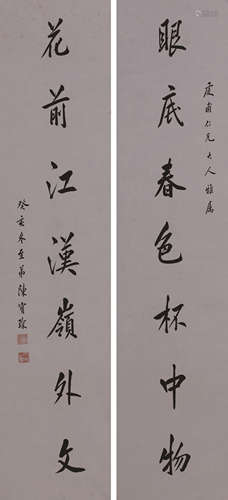 眼底春色杯中物
虞甫仁兄大人雅属
花前江漢嶺外文
癸亥冬至弟陳寶琛